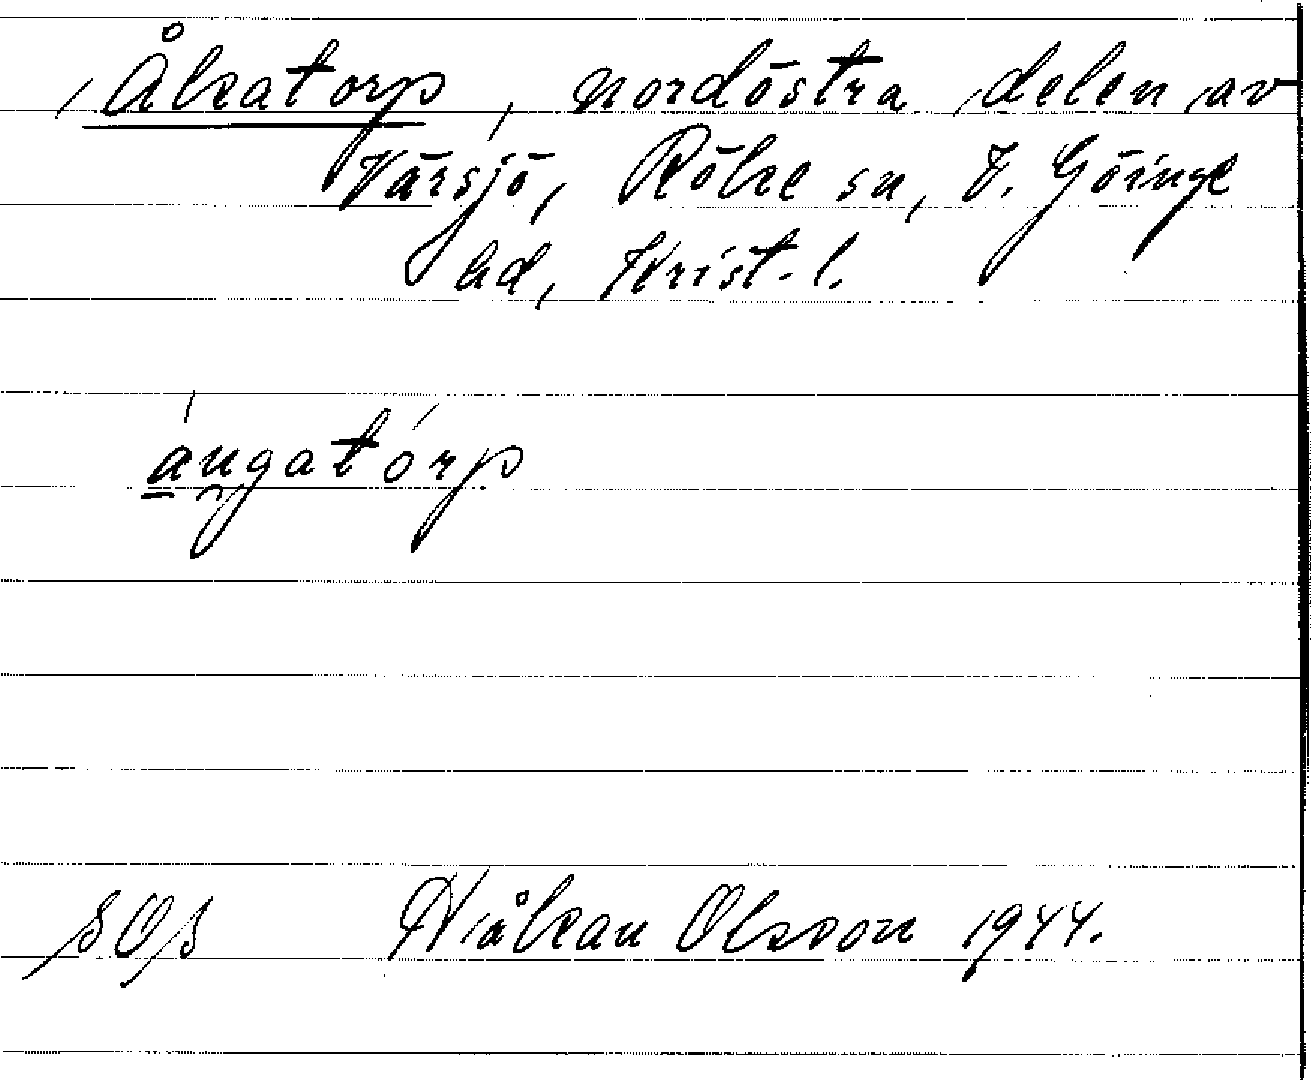 Åkatorp, nordöstra delen av
Värsjö, Röke sn, V. Göinge
hd, Krist. l.
ángatórp
Håkan Olsson 1944.